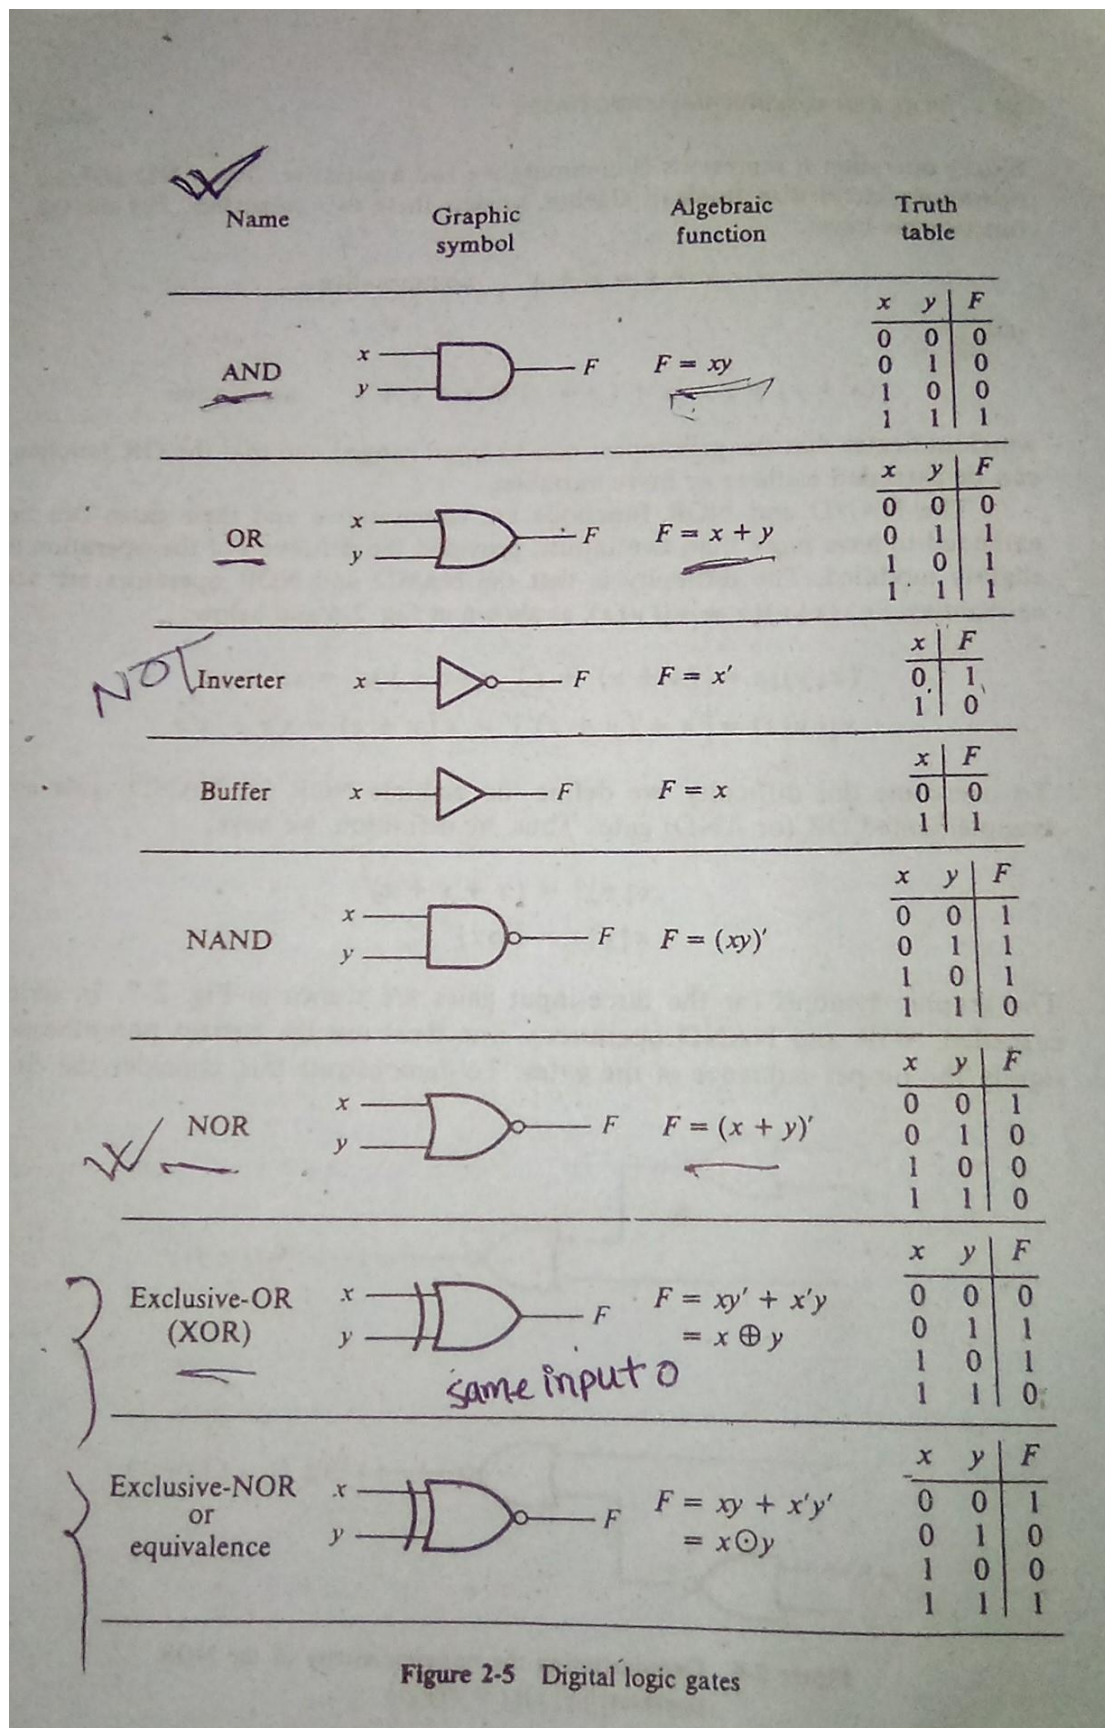 Name Graphic symbol Algebraic function Truth table
x y F
AND x y F F = xy
0 0 0
0 1 0
1 0 0
1 1 1
x y F
OR x y F F = x + y
0 0 0
0 1 1
1 0 1
1 1 1
NOT Inverter x F F = x′
x F
0 1
1 0
Buffer x F F = x
x F
0 0
1 1
NAND x y F F = (xy)′
x y F
0 0 1
0 1 1
1 0 1
1 1 0
NOR x y F F = (x + y)′
x y F
0 0 1
0 1 0
1 0 0
1 1 0
Exclusive-OR (XOR) x y F F = xy′ + x′y
= x ⊕ y
same input 0
x y F
0 0 0
0 1 1
1 0 1
1 1 0
Exclusive-NOR or equivalence x y F F = xy + x′y′
= x⊙y
x y F
0 0 1
0 1 0
1 0 0
1 1 1
Figure 2-5 Digital logic gates